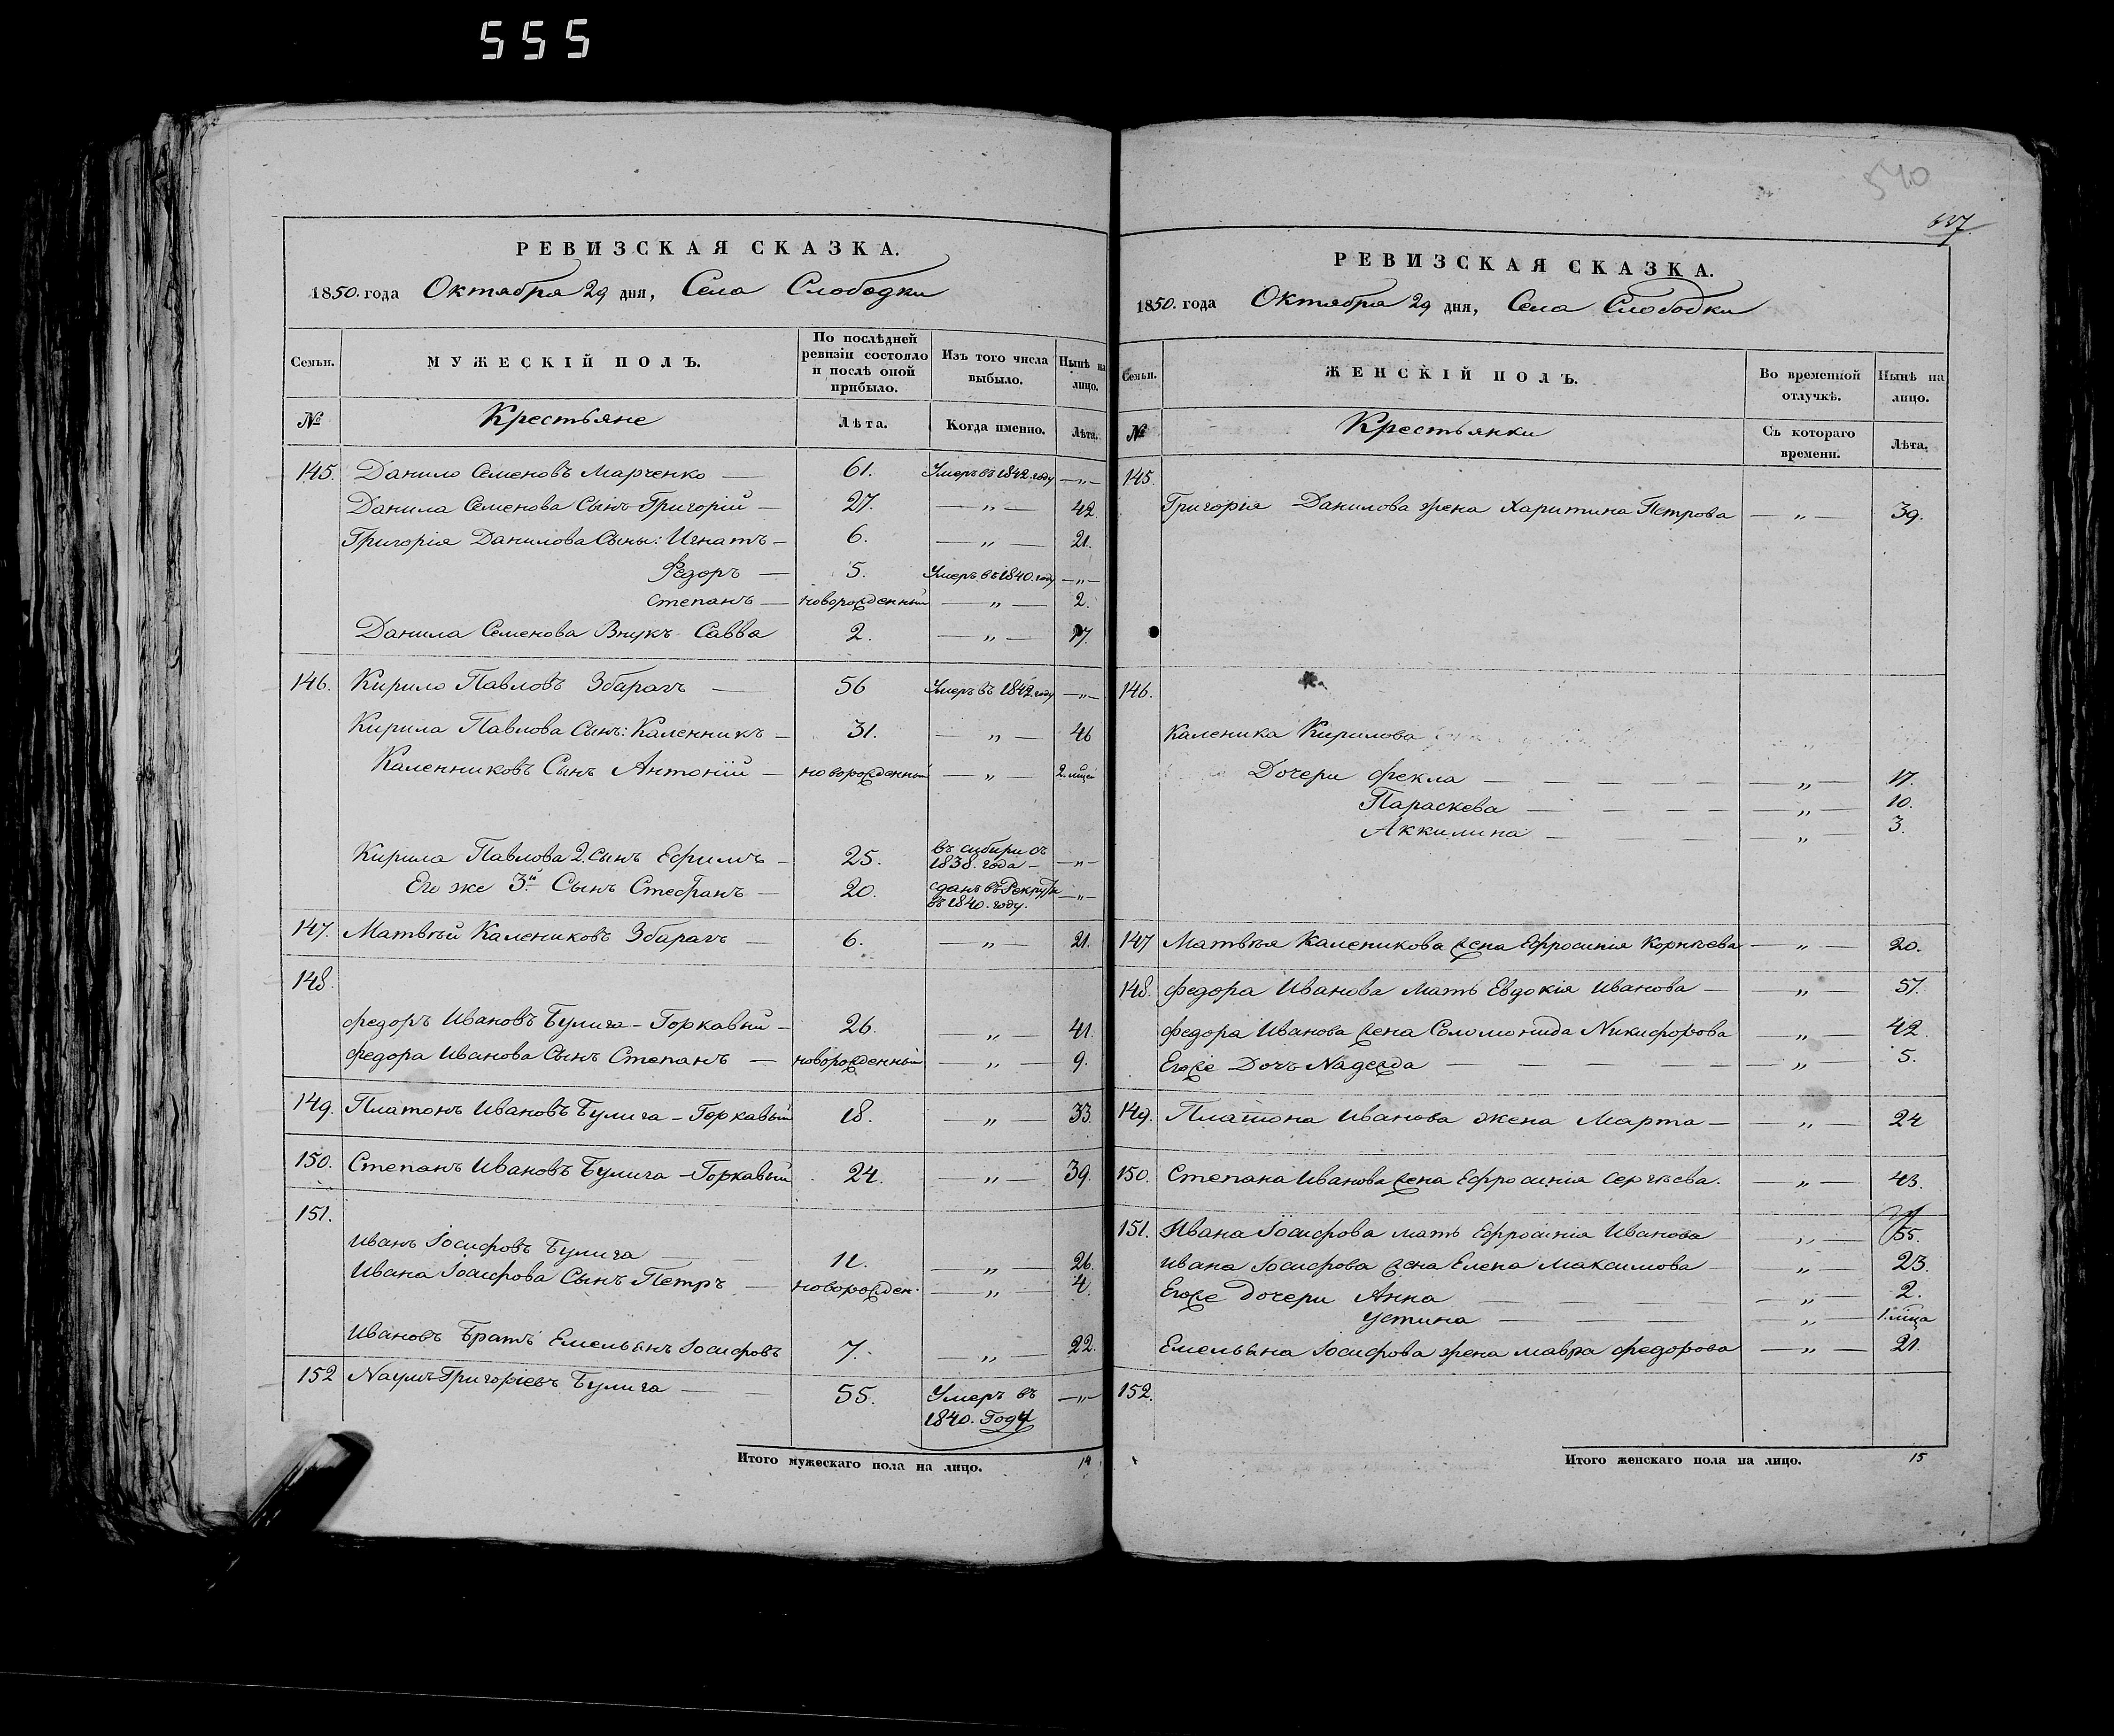 555
РЕВИЗСКАЯ СКАЗКА.
1850. года Октября 29 дня, Села Слободки
Семьи.
МУЖЕСКІЙ ПОЛЪ.
По послѣдней ревизіи состояло и послѣ оной прибыло.
Изъ того числа выбыло.
Нынѣ на лицо.
№
Крестьяне
Лѣта.
Когда именно.
Лѣта.
145. Данило Семеновъ Марченко — 61. Умеръ въ 1842. году —„—
Данила Семенова Сынъ Григорій — 27. —„— 42.
Григорія Данилова Сыны: Игнатъ — 6. —„— 21.
Федоръ — 5. Умеръ въ 1840. году —„—
Степанъ — новорожденный —„— 2.
Данила Семенова Внукъ Савва 2. —„— 17.
146. Кирило Павловъ Збарачъ — 56 Умеръ въ 1842. году —„—
Кирила Павлова Сынъ: Каленникъ — 31. —„— 46
Каленниковъ Сынъ Антоній — новорожденный —„— 2.
Кирила Павлова 2. сынъ Ефимъ — 25. въ сибири съ 1838. года — —„—
Его же 3й Сынъ Стефанъ — 20. сданъ въ Рекруты въ 1840. году. —„—
147. Матвѣй Калениковъ Збарачъ — 6. —„— 21.
148.
Федоръ Ивановъ Булига - Горкавый — 26. —„— 41.
Федора Иванова Сынъ Степанъ — новорожденный —„— 9.
149. Платонъ Ивановъ Булига - Горкавый 18. —„— 33.
150. Степанъ Ивановъ Булига - Горкавый 24. —„— 39.
151.
Иванъ Іосифовъ Булига — 11. —„— 26.
Ивана Іосифова Сынъ Петръ — новорожден. —„— 4.
Ивановъ Братъ Емельянъ Іосифовъ 7. —„— 22.
152 Наумъ Григоріевъ Булига — 55. Умеръ въ 1840. Году —„—
Итого мужескаго пола на лицо. 14
540
РЕВИЗСКАЯ СКАЗКА.
1850. года Октября 29 дня, Села Слободки
Семьи.
ЖЕНСКІЙ ПОЛЪ.
Во временной отлучкѣ.
Нынѣ на лицо.
№
Крестьянки
Съ котораго времени.
Лѣта.
145.
Григорія Данилова жена Харитина Петрова —„— 39.
146.
Каленика Кирилова
Дочери Фекла —„— 17.
Параскева —„— 10.
Аккилина —„— 3.
147 Матвѣя Каленикова жена Ефросинія Корнѣева —„— 20.
148. Федора Иванова Мать Евдокія Иванова —„— 57.
Федора Иванова жена Соломонида Никифорова —„— 42
Егоже Дочъ Надежда —„— 5.
149. Платона Иванова жена Марта —„— 24
150. Степана Иванова жена Ефросинія Сергѣева. —„— 43.
151. Ивана Іосифова мать Ефросинія Иванова —„— 55.
Ивана Іосифова жена Елена Максимова —„— 23.
Егоже дочери Анна —„— 2.
Устина —„— 1.
Емельяна Іосифова жена Мавра Федорова —„— 21.
152.
Итого женскаго пола на лицо. 15